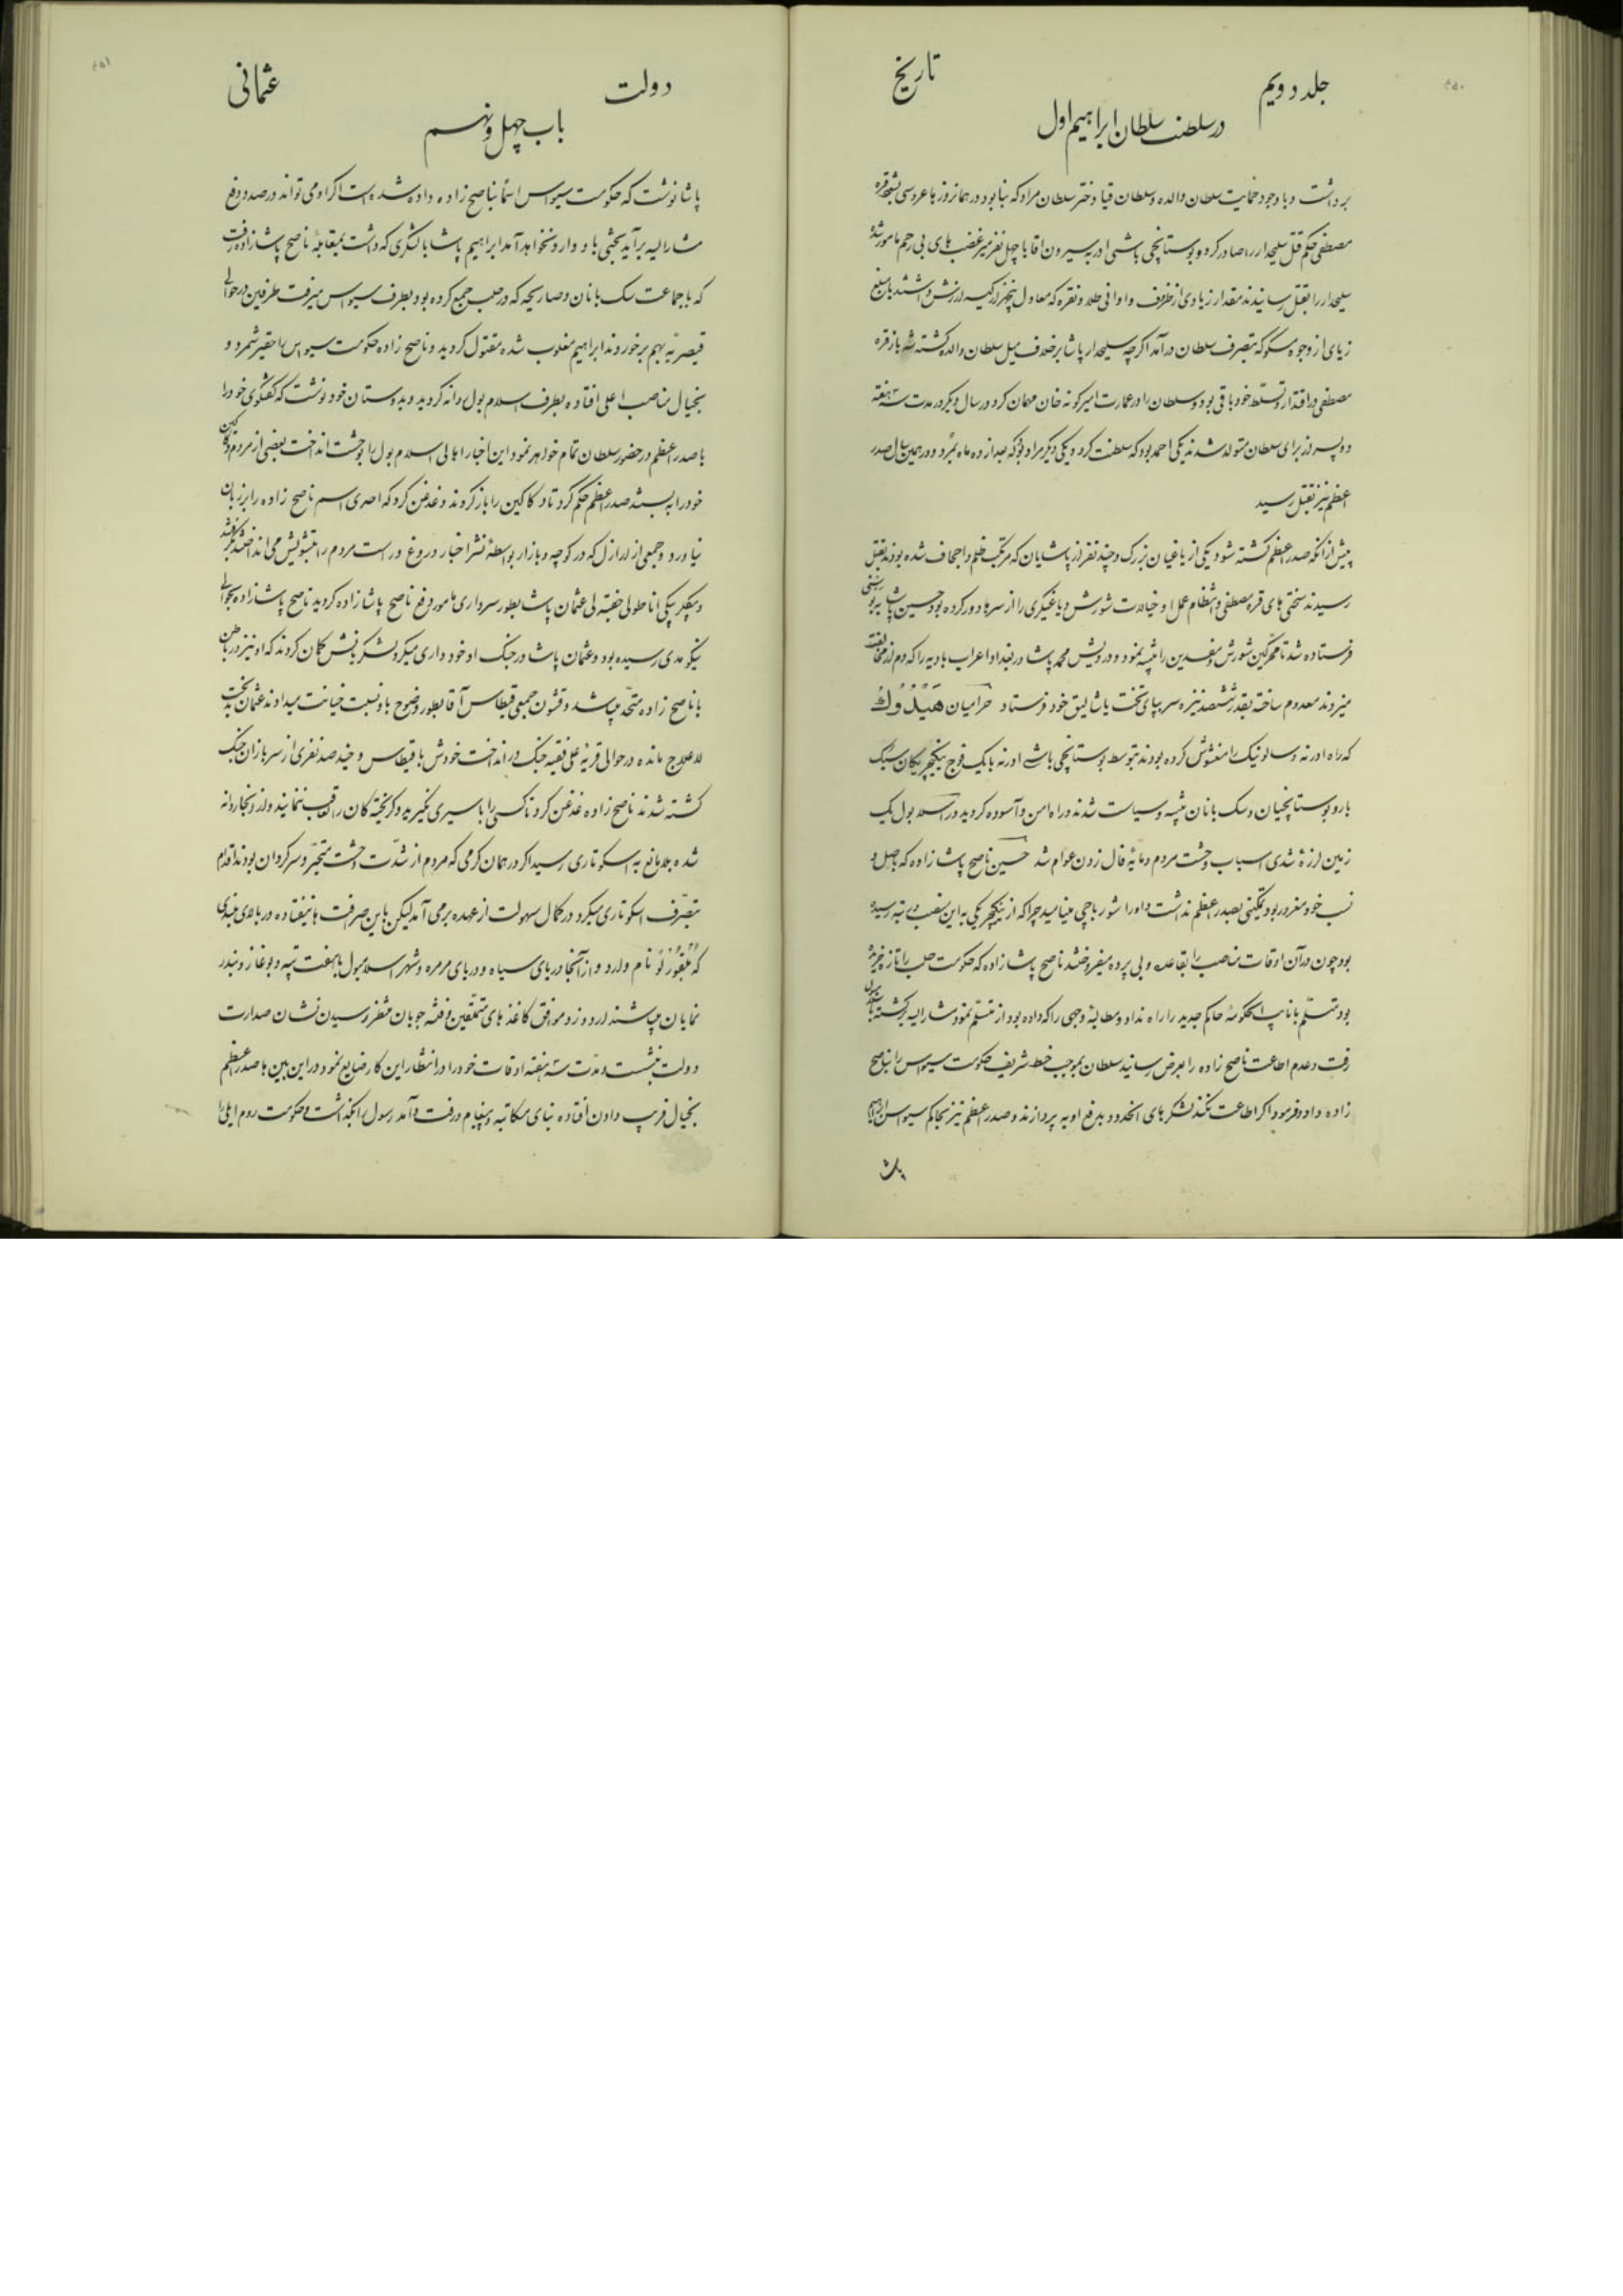 جلد دویم
تاریخ
در سلطنت سلطان ابراهیم اول
برداشت و با وجود حمایت سلطان والده و سلطان قیا دختر سلطان مراد که بنا بود در همانروز ها عروسی بشود قره
مصطفی حکم قتل سلیحدار را صادر کرد و بوستانچی باشی ادرنه بیرون اقا با چهل نفر میرغضب های بی رحم مامور شده
سلیحدار را بقتل رسانیدند مقدار زیادی از ظروف و اوانی طلا و نقره که معادل پنجهزار کیسه ارزش داشتند با مبلغ
زیادی از وجوه مسکوکه بتصرف سلطان درآمد اگرچه سلیحدار پاشا برخلاف میل سلطان والده کشته شد باز قره
مصطفی در اقتدار و تسلط خود باقی بود و سلطان را در عمارت امیرکونه خان مهمان کرد در سال دیگر در مدت سه هفته
دو پسر از برای سلطان متولد شدند یکی احمد بود که سلطنت کرد و یکی دیگر مراد بود که بعد از ده ماه بمرد و در همین سال صدر
اعظم نیز بقتل رسید
پیش از آنکه صدر اعظم کشته شود یکی از یاغیان بزرگ و چند نفر از پاشایان که مرتکب ظلم و اجحاف شده بودند بقتل
رسیدند سختی های قره مصطفی و انتظام عمل او خیالات شورش و یاغیگری را از سرها دور کرده بود حسین پاشا
فرستاده شد تا محرکین شورش و مفسدین را تنبیه نمود و درویش محمد پاشا در بغداد اعراب بادیه را که دم از مخالفت
میزدند معدوم ساخته بقدر ششصد نیزه سر بپای تخت پاشالیق خود فرستاد حرامیان هَیْدُوك
که راه ادرنه و سالونیک را مغشوش کرده بودند بتوسط بوستانچی باشی ادرنه با یک فوج ینگیچریگان سبک
بار و بوستانچیان و سک بانان تنبیه و سیاست شدند و راه امن و آسوده گردید در اسلامبول یک
زمین لرزهٔ شدی اسباب وحشت مردم و مایهٔ فال زدن عوام شد حسین ناصح پاشا زاده که باصل و
نسب خود مغرور بود تمکینی بصدر اعظم نداشت و او را شورباچی مینامید چرا که از ینگیچریگی به این منصب و رتبه رسیده
بود چون در آن اوقات مناصب را بقاعده و بی پرده میفروختند ناصح پاشا زاده که حکومت حلب را تازه خریده
بود متسلّم یا نایب الحکومهٔ حاکم جدید را راه نداد و مطالبهٔ وجهی را که داده بود از متسلّم نمود مشارالیه برگشته
رفت و عدم اطاعت ناصح زاده را بعرض رسانید سلطان بموجب خط شریف حکومت سیواس را بناصح
زاده داد و فرمود اگر اطاعت نکند لشکرهای انحدود بدفع او به پردازند و صدر اعظم نیز بحاکم سیواس ابراهیم
پاشا
دولت
عثمانی
باب چهل و نهم
پاشا نوشت که حکومت سیواس اسماً بناصح زاده داده شده است اگر او می تواند در صدد دفع
مشارالیه برآید بحثی باو وارد نخواهد آمد ابراهیم پاشا با لشکری که داشت بمقابلهٔ ناصح پاشا زاده رفت
که با جماعت سک بانان و صاریجه که در حلب جمع کرده بود بطرف سیواس میرفت طرفین در حوالی
قیصریّه بهم برخوردند ابراهیم مغلوب شده مقتول گردید و ناصح زاده حکومت سیواس را حقیر شمرد و
بخیال مناصب اعلی افتاده بطرف اسلامبول روانه گردید و بدوستان خود نوشت که گفتگوی خود را
با صدر اعظم در حضور سلطان تمام خواهم نمود این اخبار اهالی اسلامبول را بوحشت انداخت بعضی از مردم دکاکین
خود را به بستند صدر اعظم حکم کرد تا دکاکین را باز کردند و غدغن کرد که احدی اسم ناصح زاده را بر زبان
نیاورد و جمعی از اراذل که در کوچه و بازار بواسطهٔ نشر اخبار دروغ و راست مردم را بتشویش می انداختند
و بیگلربیگی اناطولی خفته لی عثمان پاشا بطور سرداری مامور دفع ناصح پاشا زاده گردید ناصح پاشا زاده بحوالی
نیکومدی رسیده بود و عثمان پاشا در جنگ او خودداری میکرد لشکریانش گمان کردند که او نیز در باطن
با ناصح زاده متحّد میباشد و قشون جمعی قیطاس آقا بطور وضوح باو نسبت خیانت میدادند عثمان پاشا
لاعلاج مانده در حوالی قریهٔ علی فقیه جنگ در انداخت خودش با قیطاس و چند صد نفری از سربازان جنگ
کشته شدند ناصح زاده غدغن کرد تا کسی را باسیری نگیرند و گریخته گان را تعاقب ننمایند و از آنجا روانه
شده بلامانع به اسکوتاری رسید اگر در همان گرمی که مردم از شدّت وحشت متحیّر و سرگردان بودند اقدام
بتصّرف اسکوتاری میکرد در کمال سهولت از عهده برمی آمد لیکن باین صرافت ها نیفتاده در بالای بلندی
که بُلْغُورْلُو نام دارد و از آنجا دریای سیاه و دریای مرمره و شهر اسلامبول با هفت تپه و بوغاز و بندر
نمایان میباشند اردو زد و موافق کاغذهای متملّقین و فتنه جویان منتظر رسیدن نشان صدارت
دولت بنشست و مدّت سه هفته اوقات خود را در انتظار این کار ضایع نمود در این بین ها صدر اعظم
بخیال فریب دادن افتاده بنای مکاتبه و پیغام و رفت و آمد رسول را بگذاشت و حکومت روم ایلی را